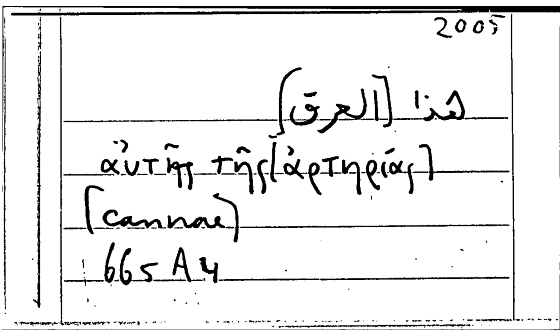 2005
هذا [العرق]
αὐτῆς τῆς [ἀρτηρίας]
[cannae]
665 A 4